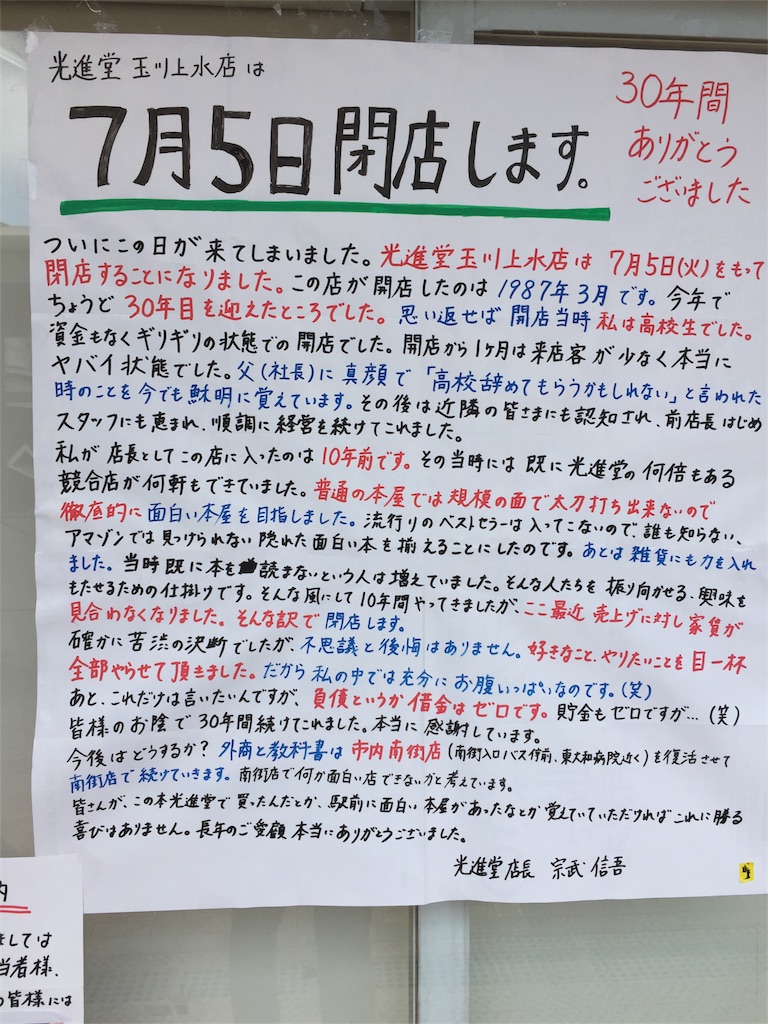 光進堂 玉川上水店は
7月5日閉店します。
30年間
ありがとう
ございました
ついにこの日が来てしまいました。光進堂玉川上水店は 7月5日(火)をもって
閉店することになりました。この店が開店したのは1987年3月です。今年で
ちょうど30年目を迎えたところでした。思い返せば開店当時私は高校生でした。
資金もなくギリギリの状態での開店でした。開店から1ヶ月は来店客が少なく本当に
ヤバイ状態でした。父(社長)に真顔で「高校辞めてもらうかもしれない」と言われた
時のことを今でも鮮明に覚えています。その後は近隣の皆さまにも認知され、前店長はじめ
スタッフにも恵まれ、順調に経営も続けてこれました。
私が店長としてこの店に入ったのは10年前です。その当時には既に光進堂の何倍もある
競合店が何軒もできていました。普通の本屋では規模の面で太刀打ち出来ないので
徹底的に面白い本屋を目指しました。流行りのベストセラーは入ってこないので、誰も知らない、
アマゾンでは見つけられない隠れた面白い本を揃えることにしたのです。あとは雑貨にも力を入れ
ました。当時既に本を読まないという人は増えていました。そんな人たちを振り向かせる、興味を
もたせるための仕掛りです。そんな風にして10年間やってきましたが、ここ最近売上げに対し家賃が
見合わなくなりました。そんな訳で閉店します。
確かに苦渋の決断でしたが、不思議と後悔はありません。好きなこと、やりたいことを目一杯
全部やらせて頂きました。だから私の中では充分にお腹いっぱいなのです。(笑)
あと、これだけは言いたいんですが、負債というか借金はゼロです。貯金もゼロですが…(笑)
皆様のお陰で30年間続けてこれました。本当に感謝しています。
今後はどうするか?外商と教科書は市内南街店(南街入口バス停前、東大和病院近く)を復活させて
南街店で続けていきます。南街店で何か面白い店できないかと考えています。
皆さんが、この本光進堂で買ったんだとか、駅前に面白い本屋があったなとか覚えていていただければこれに勝る
喜びはありません。長年のご愛顧本当にありがとうございました。
光進堂店長 宗武信吾
内
ましては
当者様、
の皆様には